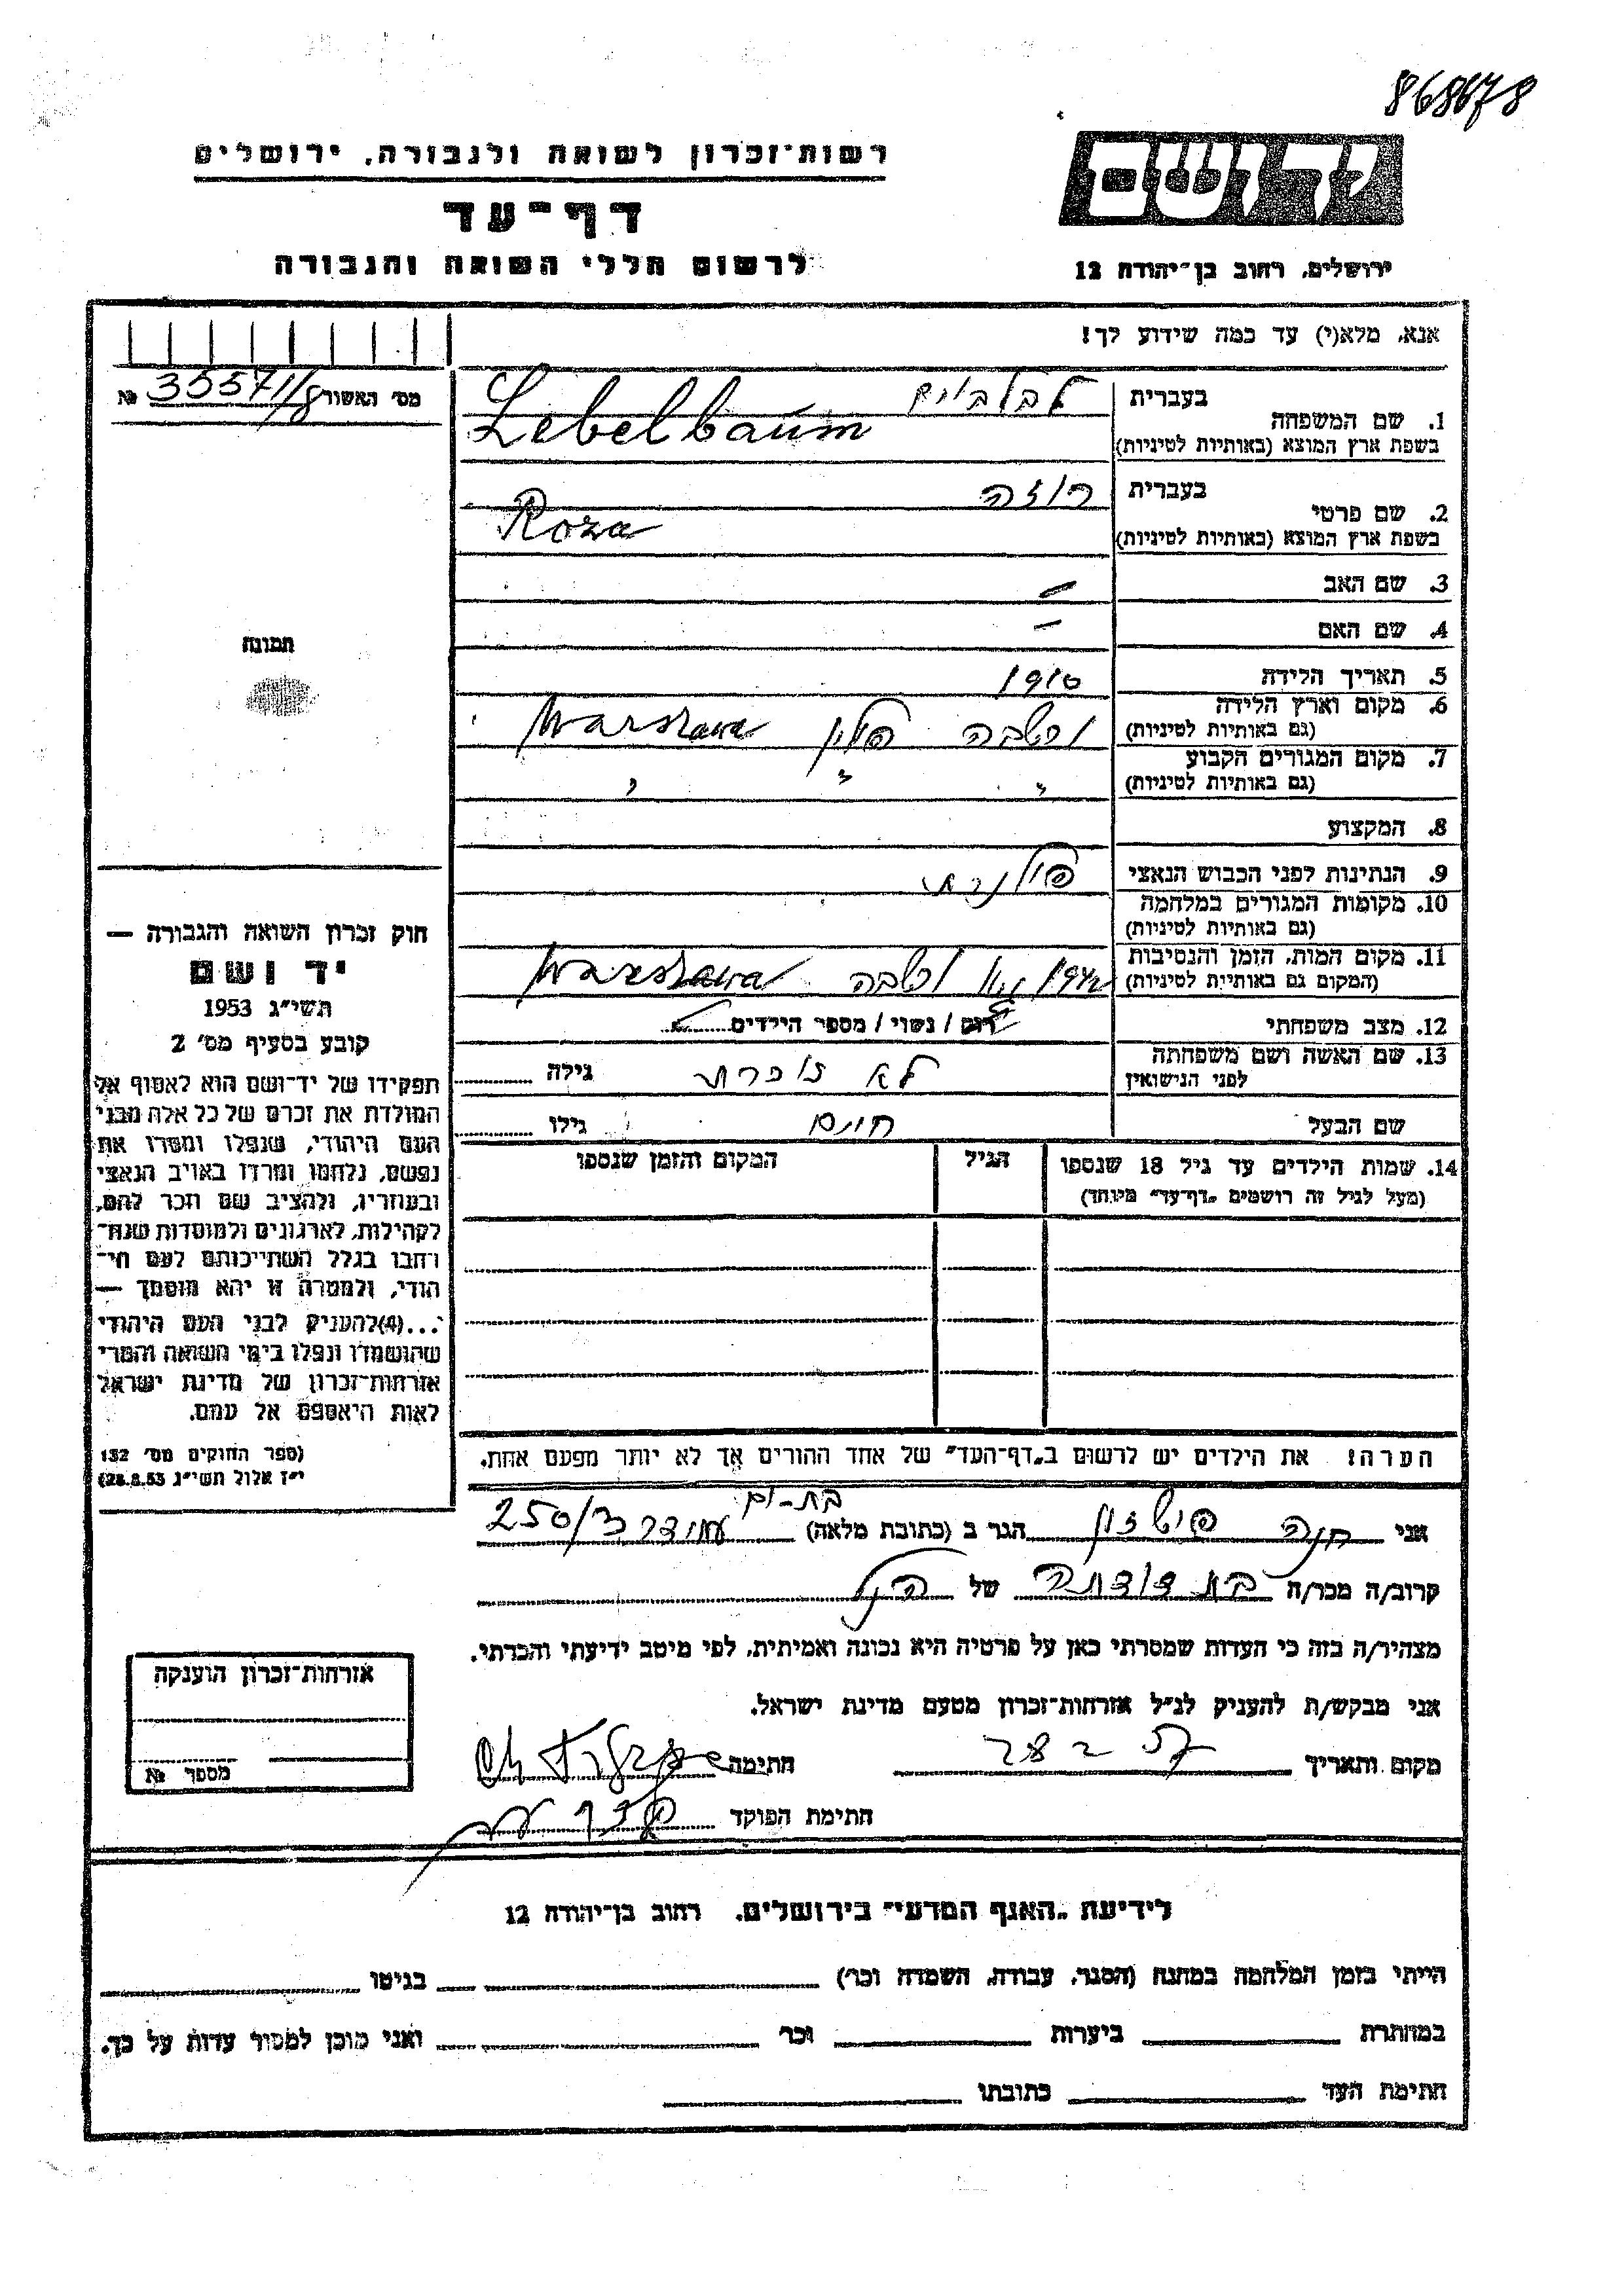 868678
רשות־זכרון לשואה ולגבורה, ירושלים
דף־עד
לרשום חללי השואה והגבורה
יד ושם
ירושלים, רחוב בן־יהודה 12
אנא, מלא(י) עד כמה שידוע לך!
מס׳ האשור 35571/8 №
תמונה
1. שם המשפחה
בעברית לבלבוים
בשפת ארץ המוצא (באותיות לטיניות) Lebelbaum
2. שם פרטי
בעברית רוזה
בשפת ארץ המוצא (באותיות לטיניות) Roza
3. שם האב –
4. שם האם –
5. תאריך הלידה 1910
6. מקום וארץ הלידה
(גם באותיות לטיניות) ורשבה פולין Warszawa
7. מקום המגורים הקבוע
(גם באותיות לטיניות) " " "
8. המקצוע
9. הנתינות לפני הכבוש הנאצי פולנית
10. מקומות המגורים במלחמה
(גם באותיות לטיניות)
11. מקום המות, הזמן והנסיבות
(המקום גם באותיות לטיניות) 1942 ורשבה Warszawa
12. מצב משפחתי רווק / נשוי / מספר הילדים
13. שם האשה ושם משפחתה
לפני הנישואין לא זוכרת גילה
שם הבעל גילו
14. שמות הילדים עד גיל 18 שנספו
(מעל לגיל זה רושמים „דף־עד״ מיוחד)
הגיל
המקום והזמן שנספו
הערה! את הילדים יש לרשום ב„דף־העד״ של אחד ההורים אך לא יותר מפעם אחת.
חוק זכרון השואה והגבורה —
יד ושם
תשי״ג 1953
קובע בסעיף מס׳ 2
תפקידו של יד־ושם הוא לאסוף אל
המולדת את זכרם של כל אלה מבני
העם היהודי, שנפלו ומסרו את
נפשם, נלחמו ומרדו באויב הנאצי
ובעוזריו, ולהציב שם וזכר להם,
לקהילות, לארגונים ולמוסדות שנח־
רבו בגלל השתייכותם לעם הי־
הודי, ולמטרה זו יהא מוסמך —
...(4)להעניק לבני העם היהודי
שהושמדו ונפלו בימי השואה והמרי
אזרחות־זכרון של מדינת ישראל
לאות היאספם אל עמם.
(ספר החוקים מס׳ 132
י״ז אלול תשי״ג 28.8.53)
בת-ים
אני חנה הגר ב (כתובת מלאה) 250/3
קרוב/ה מכר/ה בת דודתה של הנ״ל
מצהיר/ה בזה כי העדות שמסרתי כאן על פרטיה היא נכונה ואמיתית, לפי מיטב ידיעתי והכרתי.
אני מבקש/ת להעניק לנ״ל אזרחות־זכרון מטעם מדינת ישראל.
מקום ותאריך חתימה
חתימת הפוקד
אזרחות־זכרון הוענקה
מספר №
לידיעת „האגף המדעי״ בירושלים, רחוב בן־יהודה 12
הייתי בזמן המלחמה במחנה (הסגר, עבודה, השמדה וכו׳) בגיטו
במחתרת ביערות וכו׳ ואני מוכן למסור עדות על כך.
חתימת העד כתובתו